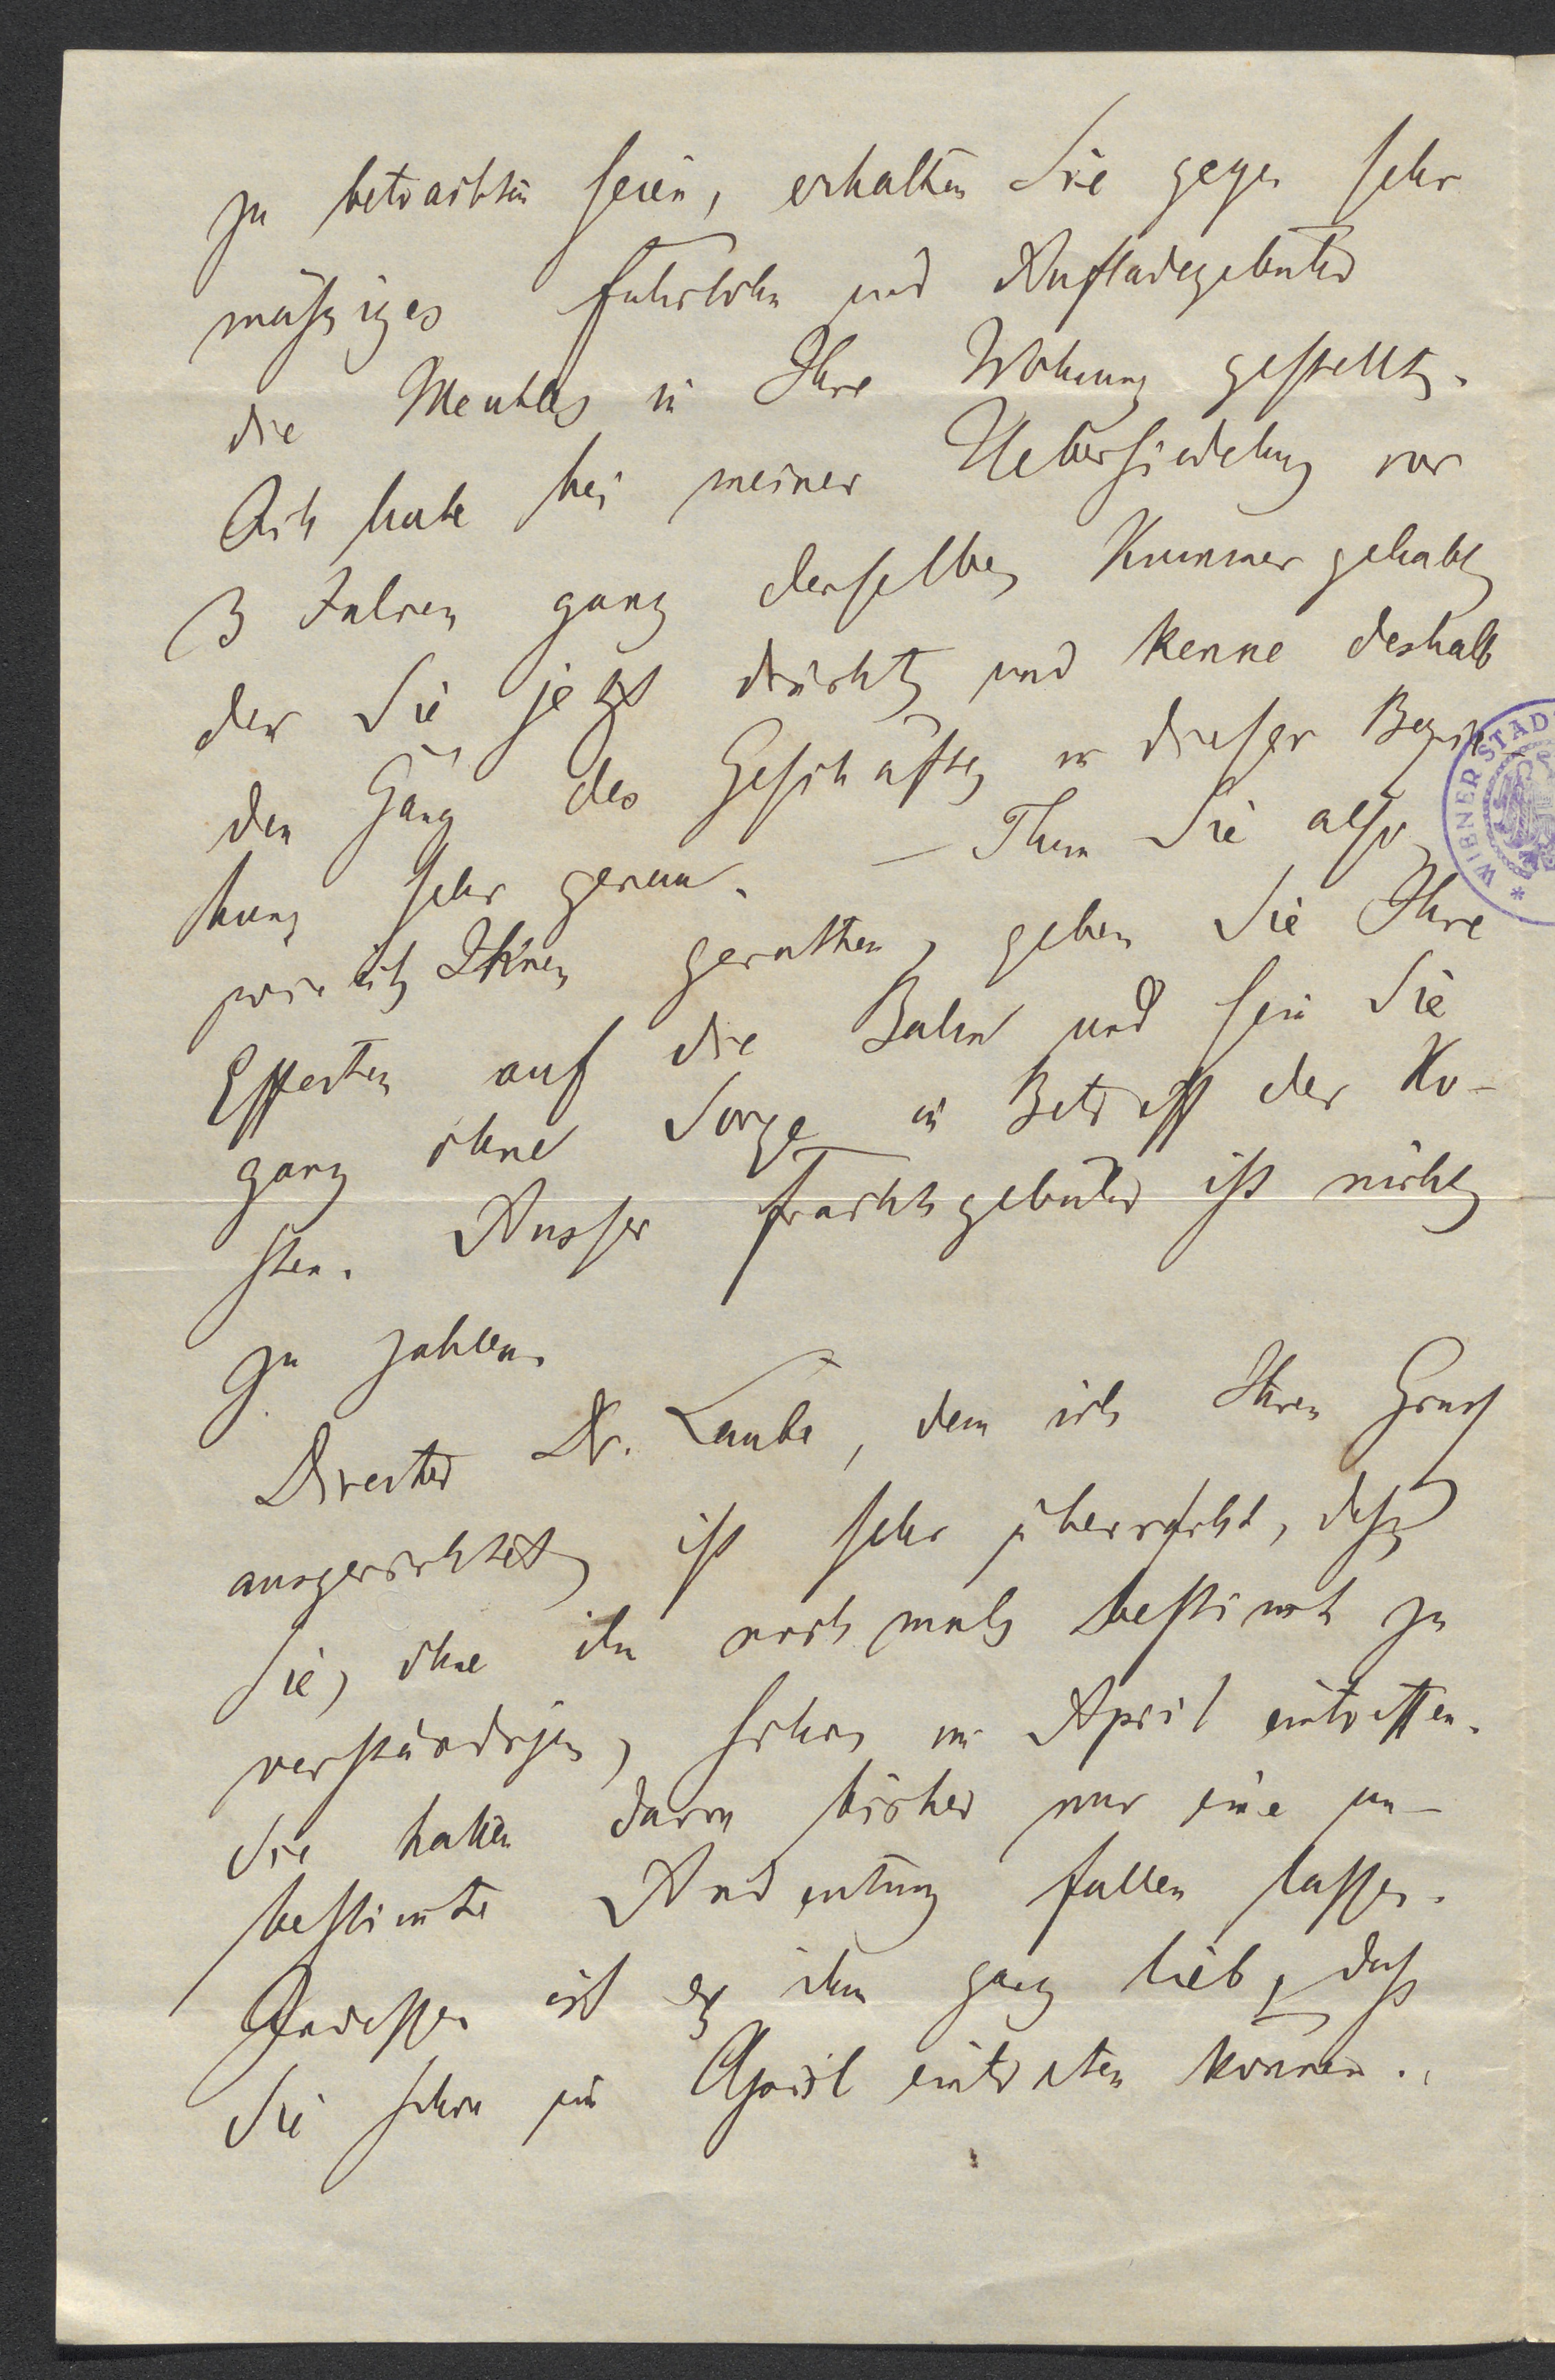 zu betrachten seien, erhalten Sie gegen sehr
mäßiges Fuhrlohn und Aufladegebühr
die Meubles in Ihre Wohnung gestellt.
Ich habe bei meiner Uebersiedelung vor
3 Jahren ganz denselben Kummer gehabt
der Sie jetzt drückt, und kenne deshalb
den Gang des Geschäftes in dieser Bezie-
hung sehr genau. – Thun Sie also,
wie ich Ihnen gerathen, geben Sie Ihre
Effecten auf die Bahn und sein Sie
ganz ohne Sorge in Betreff der Ko-
sten. Ausser Frachtgebühr ist nichts
zu zahlen.
Director Dr. Laube, dem ich Ihren Gruß
ausgerichtet, ist sehr überrascht, daß
Sie, ohne ihn nochmals bestimt zu
verständigen, schon im April eintreffen.
Sie haben davon bisher nur eine un-
bestimte Andeutung fallen lassen.
Indessen ist es ihm ganz lieb, daß
Sie schon im April eintreten können.
WIENER STAD